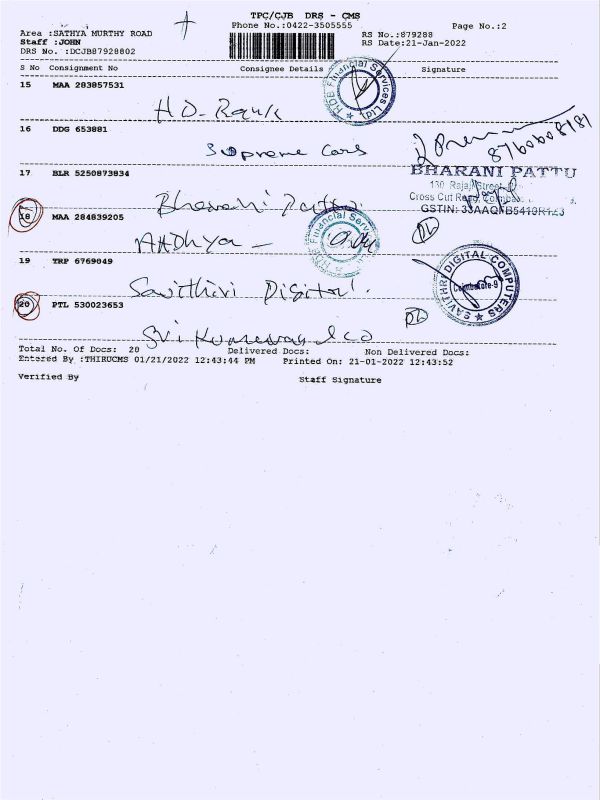 TPC/CJB DRS - CMS
Phone No.:0422-3505555
Page No.:2
Area :SATHYA MURTHY ROAD
Staff :JOHN
DRS No. :DCJB87928802
RS No.:879288
RS Date:21-Jan-2022
S No Consignment No Consignee Details Signature
15 MAA 283857531
HDFC Financial Services Ltd
16 DDG 653881
Supreme Cars
8760608181
17 BLR 5250873834
BHARANI PATTU
130 Raja Street
Cross Cut Road, Coimbatore
Bharani Pattu
18 MAA 284839205
Financial Services
19 TRP 6769049
Savithiri Digital.
SAVITHRI DIGITAL COMPUTERS
Coimbatore-9
20 PTL 530023653
DL
Sri Kumaran & Co
Total No. Of Docs: 20 Delivered Docs: Non Delivered Docs:
Entered By :THIRUCMS 01/21/2022 12:43:44 PM Printed On: 21-01-2022 12:43:52
Verified By Staff Signature